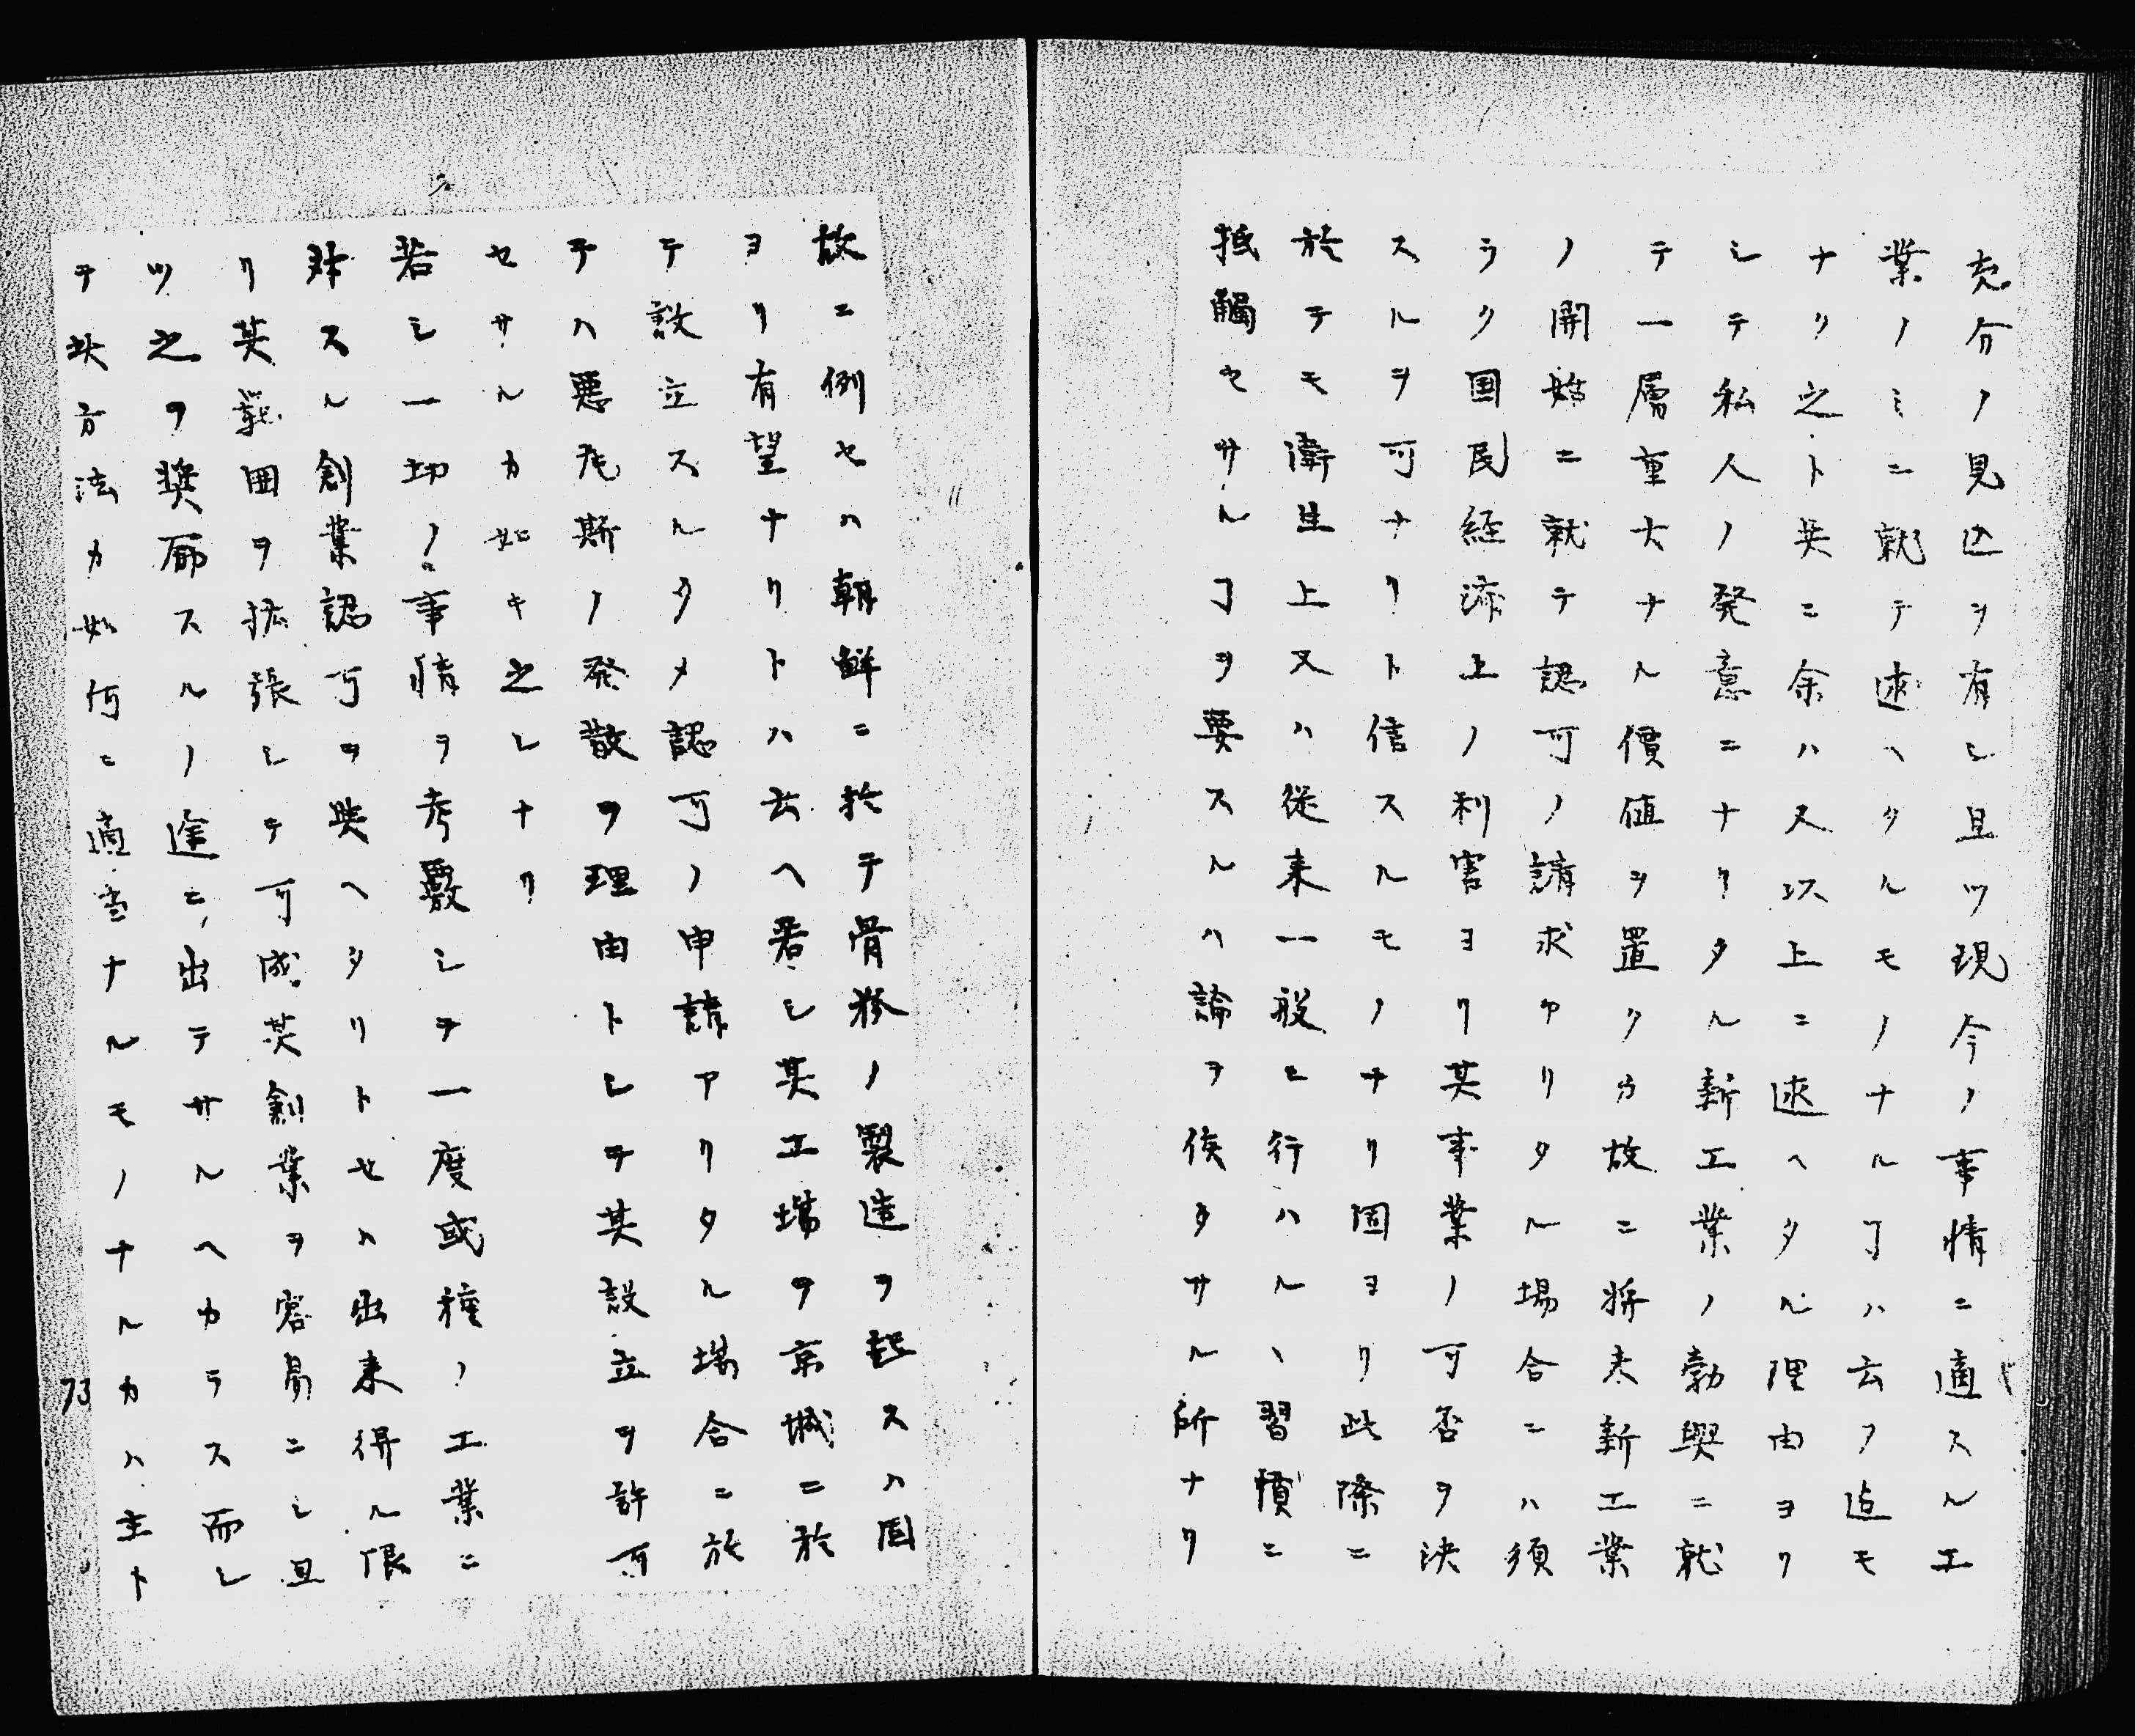 充分ノ見込ヲ有シ且ツ現今ノ事情ニ適スル工
業ノミニ就テ述ヘタルモノナルヿハ云フ迠モ
ナリ之ト共ニ余ハ又以上ニ述ヘタル理由ヨリ
シテ私人ノ発意ニナリタル新工業ノ勃興ニ就
テ一層重大ナル價値ヲ置クカ故ニ将来新工業
ノ開始ニ就テ認可ノ請求アリタル場合ニハ須
ラク国民経済上ノ利害ヨリ其事業ノ可否ヲ決
スルヲ可ナリト信スルモノナリ固ヨリ此際ニ
於テモ衛生上又ハ従来一般ニ行ハルヽ習慣ニ
抵觸セサルヿヲ要スルハ論ヲ俟タサル所ナリ
故ニ例セハ朝鮮ニ於テ骨粉ノ製造ヲ起スハ固
ヨリ有望ナリトハ云ヘ若シ其工場ヲ京城ニ於
テ設立スルタメ認可ノ申請アリタル場合ニ於
テハ悪瓦斯ノ発散ヲ理由トシテ其設立ヲ許可
セサルカ如キ之レナリ
若シ一切ノ事情ヲ考覈シテ一度或種ノ工業ニ
対スル創業認可ヲ與ヘタリトセハ出来得ル限
リ其範囲ヲ拡張シテ可成其創業ヲ容易ニシ且
ツ之ヲ奨励スルノ途ニ出テサルヘカラス而シ
テ此方法カ如何ニ適当ナルモノナルカハ主ト
73